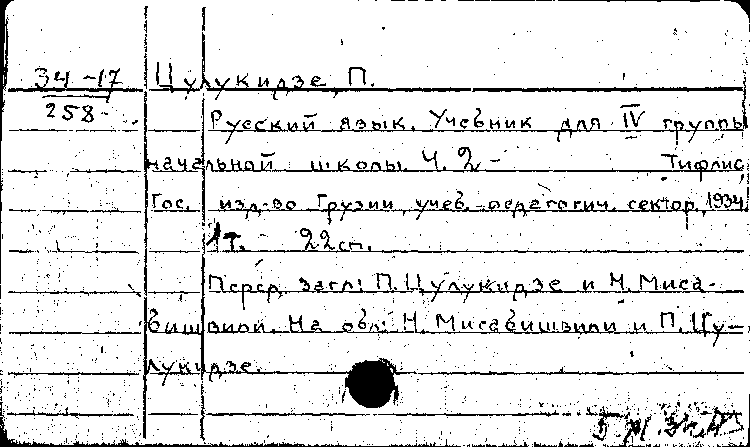 34-17 Цулукидзе, П.
258
Русский язык. Учебник для IV группы
начальной школы. Ч. 2 - Тифлис,
Гос. изд-во Грузии, учеб.-педагогич. сектор, 1934.
1т. 22 см.
Перед загл: П. Цулукидзе и Н. Миса-
бишвили. На обл: Н. Мисабишвили и П. Цу-
лукидзе.